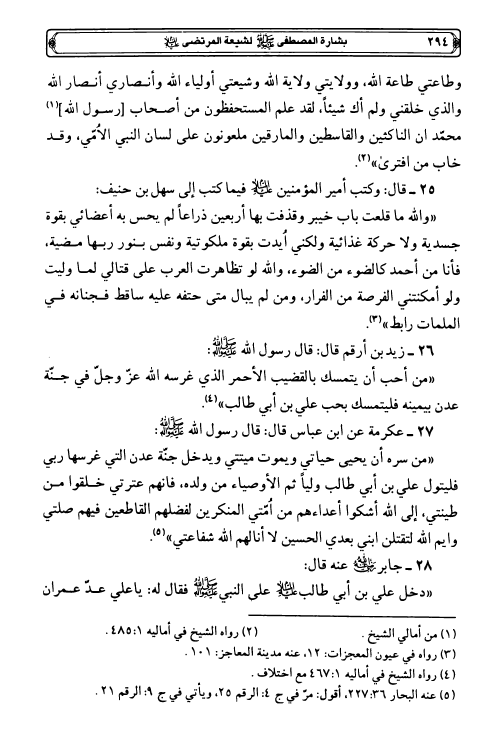 ٢٩٤ بشارة المصطفى ﷺ لشيعة المرتضى ﵇
وطاعتي طاعة الله، وولايتي ولاية الله وشيعتي أولياء الله وأنصاري أنصار الله
والذي خلقني ولم أك شيئاً، لقد علم المستحفظون من أصحاب [رسول الله](١)
محمّد ان الناكثين والقاسطين والمارقين ملعونون على لسان النبي الأمّي، وقد
خاب من افترى»(٢).
٢٥ ـ قال: وكتب أمير المؤمنين ﵇ فيما كتب إلى سهل بن حنيف:
«والله ما قلعت باب خيبر وقذفت بها أربعين ذراعاً لم يحس به أعضائي بقوة
جسدية ولا حركة غذائية ولكني اُيدت بقوة ملكوتية ونفس بنور ربها مضية،
فأنا من أحمد كالضوء من الضوء، والله لو تظاهرت العرب على قتالي لما وليت
ولو أمكنتني الفرصة من الفرار، ومن لم يبال متى حتفه عليه ساقط فجنانه في
الملمات رابط»(٣).
٢٦ ـ زيد بن أرقم قال: قال رسول الله ﷺ:
«من أحب أن يتمسك بالقضيب الأحمر الذي غرسه الله عزّ وجلّ في جنّة
عدن بيمينه فليتمسك بحب علي بن أبي طالب»(٤).
٢٧ ـ عكرمة عن ابن عباس قال: قال رسول الله ﷺ:
«من سره أن يحيى حياتي ويموت ميتتي ويدخل جنّة عدن التي غرسها ربي
فليتول علي بن أبي طالب ولياً ثم الأوصياء من ولده، فانهم عترتي خلقوا من
طينتي، إلى الله أشكوا أعداءهم من اُمّتي المنكرين لفضلهم القاطعين فيهم صلتي
وايم الله لتقتلن ابني بعدي الحسين لا أنالهم الله شفاعتي»(٥).
٢٨ ـ جابر ﵁ عنه قال:
«دخل علي بن أبي طالب ﵇ على النبي ﷺ فقال له: ياعلي عدّ عمران
(١) من أمالي الشيخ . (٢) رواه الشيخ في أماليه ٤٨٥:١ .
(٣) رواه في عيون المعجزات: ١٢، عنه مدينة المعاجز: ١٠١ .
(٤) رواه الشيخ في أماليه ٤٦٧:١ مع اختلاف .
(٥) عنه البحار ٢٢٧:٣٦، أقول: مرّ في ج ٤: الرقم ٢٥، ويأتي في ج ٩: الرقم ٢١ .